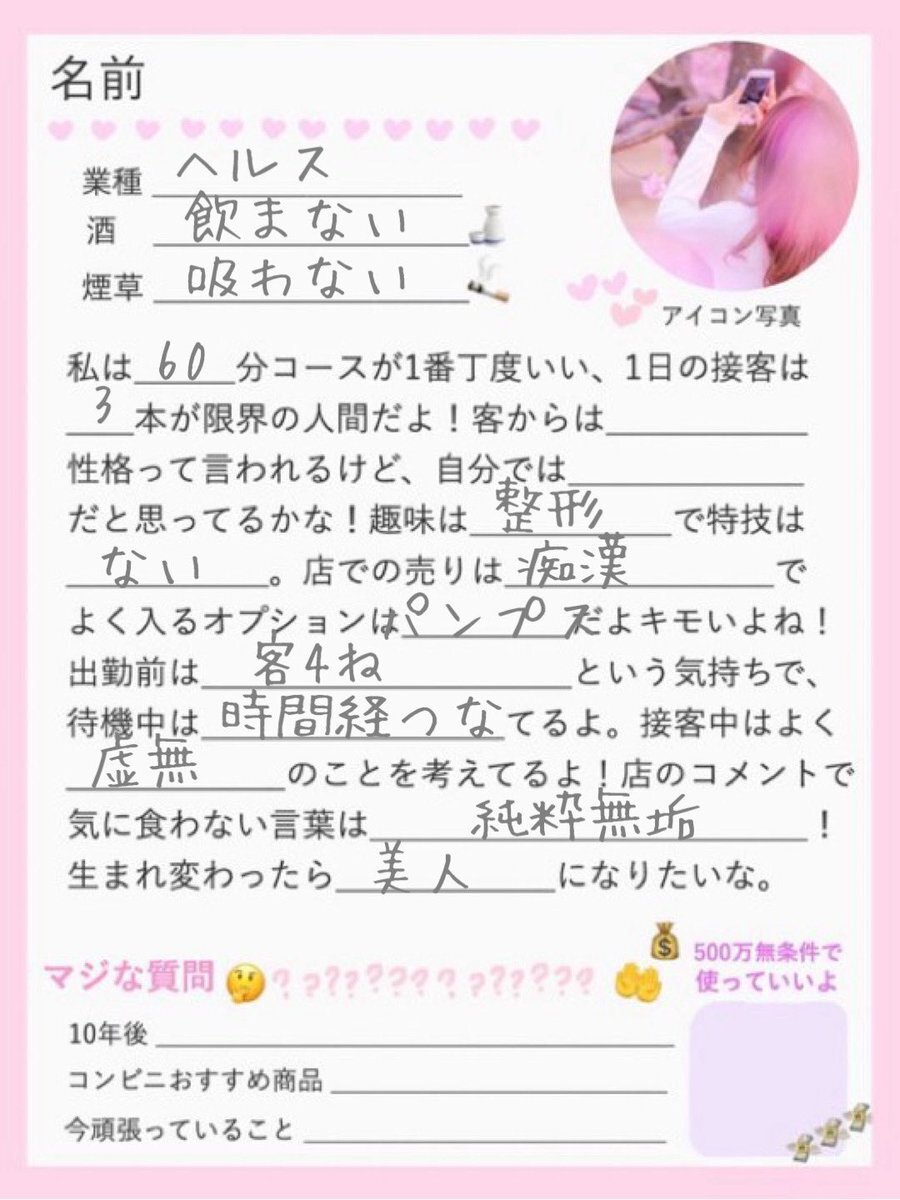 名前
業種 ヘルス
酒 飲まない
煙草 吸わない
アイコン写真
私は60分コースが1番丁度いい、1日の接客は
3本が限界の人間だよ！客からは
性格って言われるけど、自分では
だと思ってるかな！趣味は整形で特技は
ない。店での売りは痴漢で
よく入るオプションはパンプスだよキモいよね！
出勤前は客4ねという気持ちで、
待機中は時間経つなてるよ。接客中はよく
虚無のことを考えてるよ！店のコメントで
気に食わない言葉は純粋無垢！
生まれ変わったら美人になりたいな。
マジな質問 ????????? ???????
500万無条件で
使っていいよ
10年後
コンビニおすすめ商品
今頑張っていること